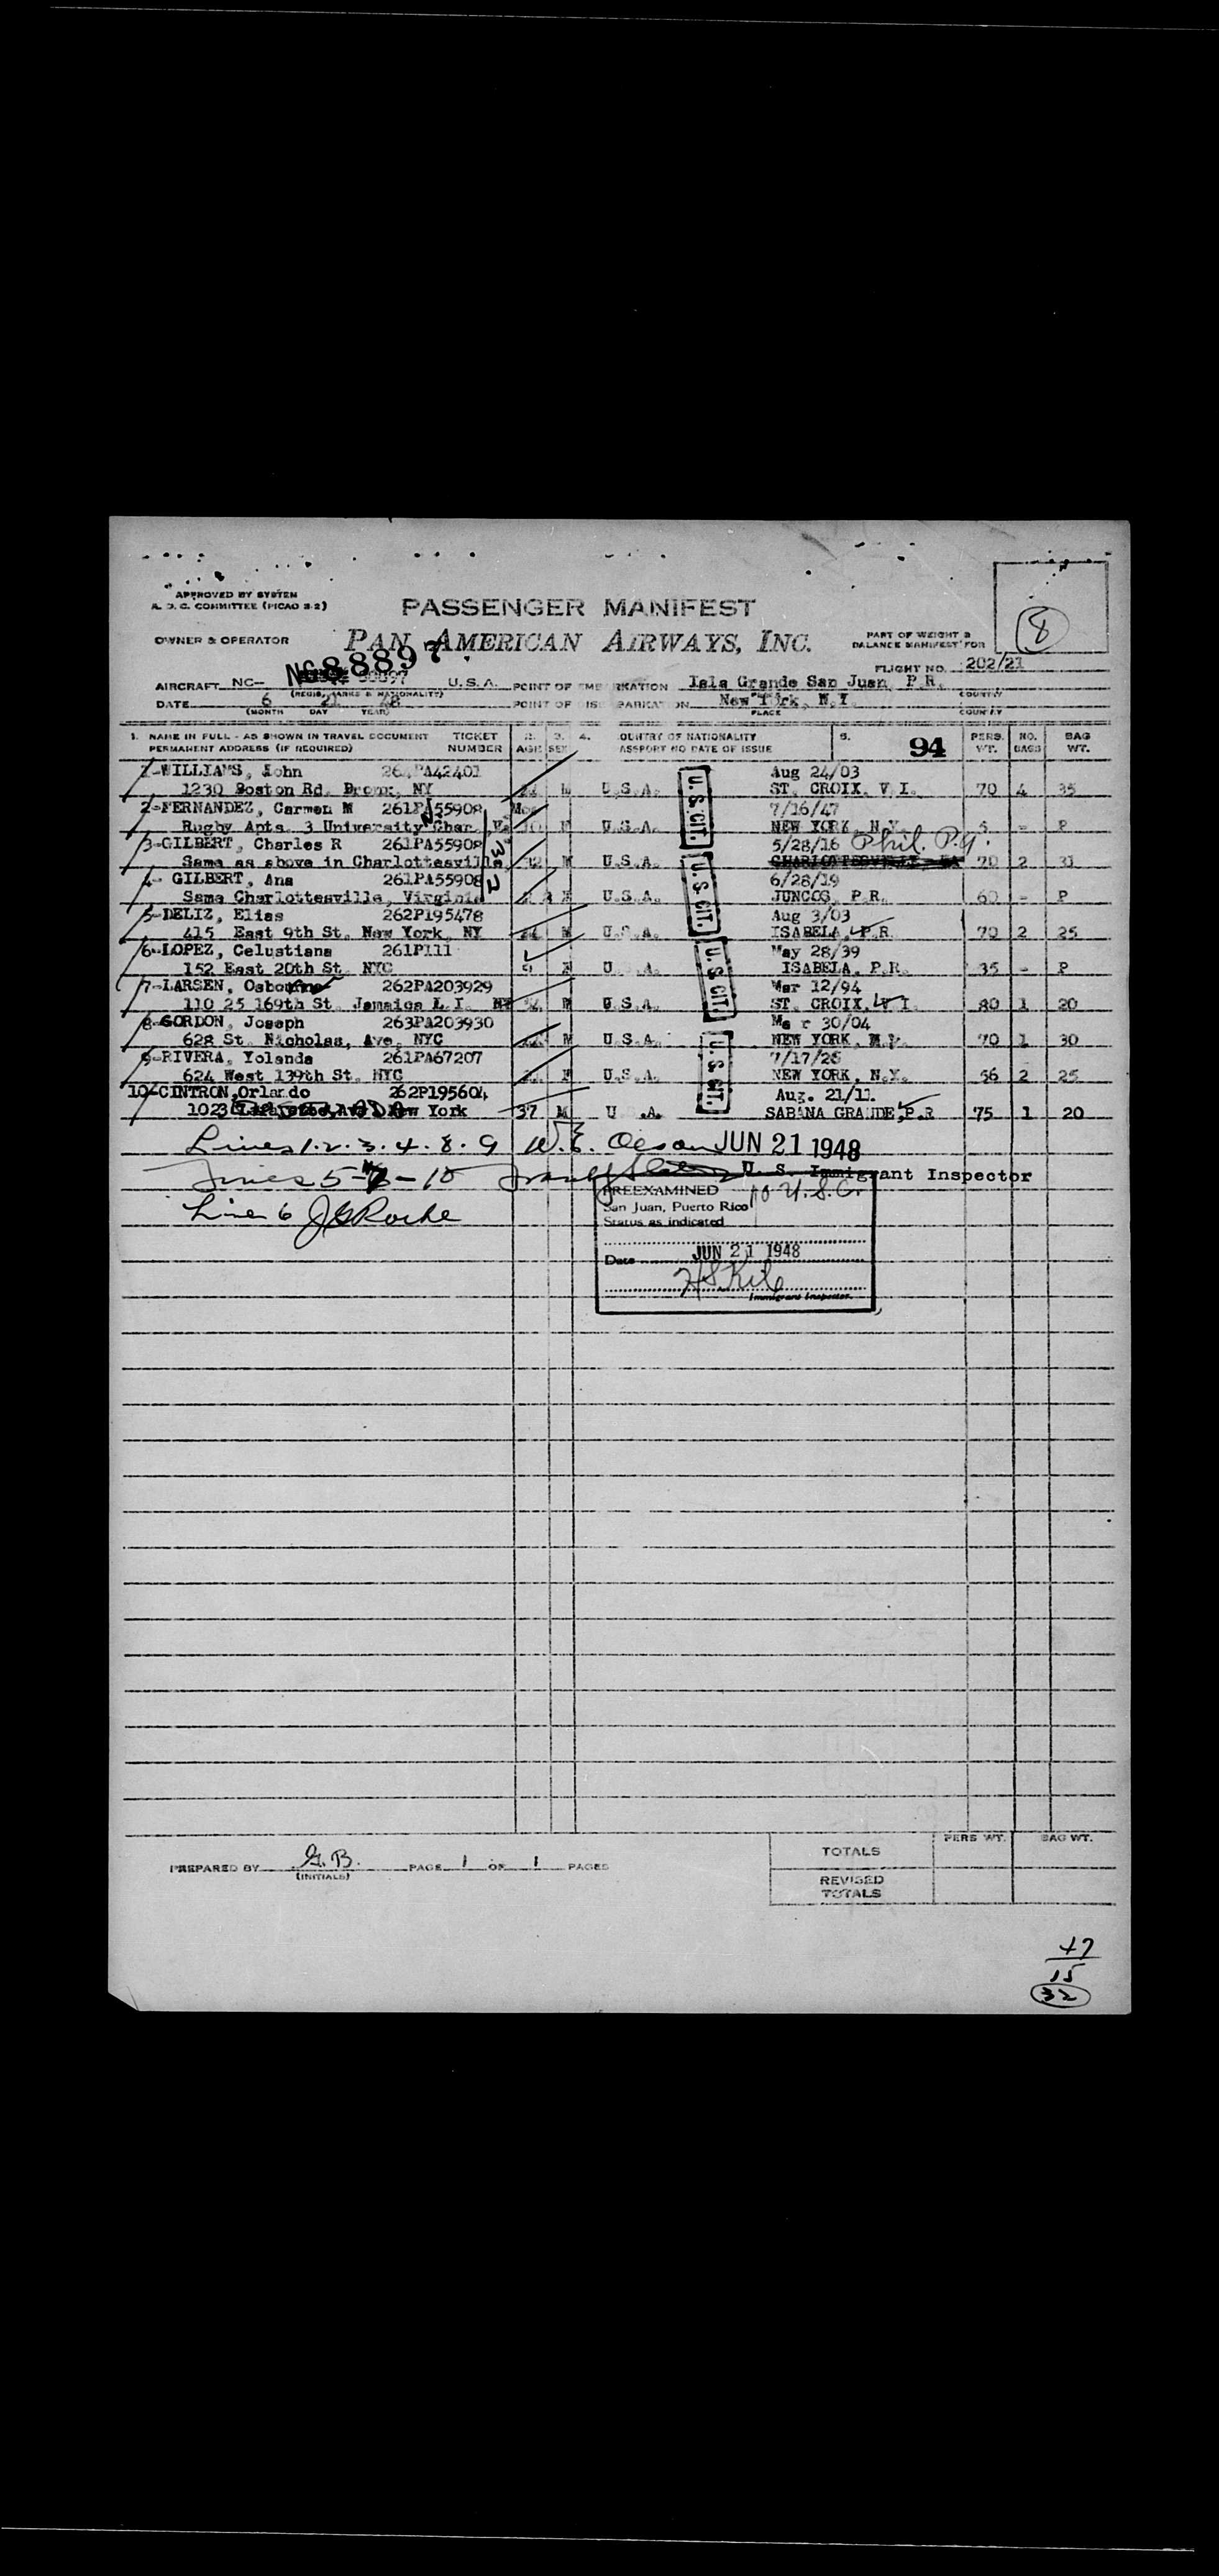 APPROVED BY SYSTEM
A. D. C. COMMITTEE (PICAO 3-2)
PASSENGER MANIFEST
8
OWNER & OPERATOR
PAN AMERICAN AIRWAYS, INC.
PART OF WEIGHT &
BALANCE MANIFEST FOR
FLIGHT NO. 202/21
AIRCRAFT NC- NC88897 U.S.A. POINT OF EMBARKATION Isla Grande San Juan, P.R.
(REGIS. MARKS & NATIONALITY) COUNTRY
DATE 6 21 48 POINT OF DISEMBARKATION New York, N.Y.
(MONTH DAY YEAR) PLACE COUNTRY
1. NAME IN FULL - AS SHOWN IN TRAVEL DOCUMENT TICKET 2. 3. 4. COUNTRY OF NATIONALITY 5. 94 PERS. NO. BAG
PERMANENT ADDRESS (IF REQUIRED) NUMBER AGE SEX PASSPORT NO DATE OF ISSUE WT. BAGS WT.
1-WILLIAMS, John 264PA42401 Aug 24/03
1230 Boston Rd. Bronx, NY M U.S.A. ST. CROIX, V.I. 70 4 35
2-FERNANDEZ, Carmen M 261PA55908 Mos 7/16/47
Rugby Apts. 3 University Char., Va. 10 F U.S.A. NEW YORK, N.Y. 5 - P
3-GILBERT, Charles R 261PA55908 5/28/16 Phil. Pa.
Same as above in Charlottesville 32 M U.S.A. CHARLOTTESVILLE, VA 70 2 31
4- GILBERT, Ana 261PA55908 6/28/19
Same Charlottesville, Virginia F U.S.A. JUNCOS, P.R. 60 - P
5-DELIZ, Elias 262P195478 Aug 3/03
415 East 9th St. New York, NY 44 M U.S.A. ISABELA, P.R. 70 2 25
6-LOPEZ, Celustiana 261P111 May 28/39
152 East 20th St. NYC 9 F U. .A. ISABELA, P.R. 35 - P
7-LARSEN, Osbourne 262PA203929 Mar 12/94
110 25 169th St. Jamaica L.I. NY 54 M U.S.A. ST. CROIX, V.I. 80 1 20
8-GORDON, Joseph 263PA203930 Mar 30/04
628 St. Nicholas, Ave, NYC 44 M U.S.A. NEW YORK, N.Y. 70 1 30
9-RIVERA, Yolanda 261PA67207 7/17/26
624 West 139th St. NYC F U.S.A. NEW YORK, N.Y. 56 2 25
10-CINTRON, Orlando 262P195604 Aug. 21/11.
1023 New York 37 M U .A. SABANA GRANDE, P.R 75 1 20
U.S. CIT.
U.S. CIT.
U.S. CIT.
U.S. CIT.
Lines 1. 2. 3. 4. 8. 9 W.E. Olson JUN 21 1948
Lines 5-7-10 U. S. Immigrant Inspector
Line 6 JG Roche
PREEXAMINED 10 U.S.C.
San Juan, Puerto Rico
Status as indicated
Date JUN 21 1948
Immigrant Inspector
PREPARED BY G.B. PAGE 1 OF 1 PAGES
(INITIALS)
PERS WT. BAG WT.
TOTALS
REVISED
TOTALS
47
15
32